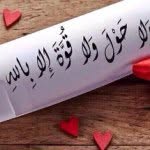 لا حَوْلَ وَلا قُوَّةَ إِلا بِاللهِ